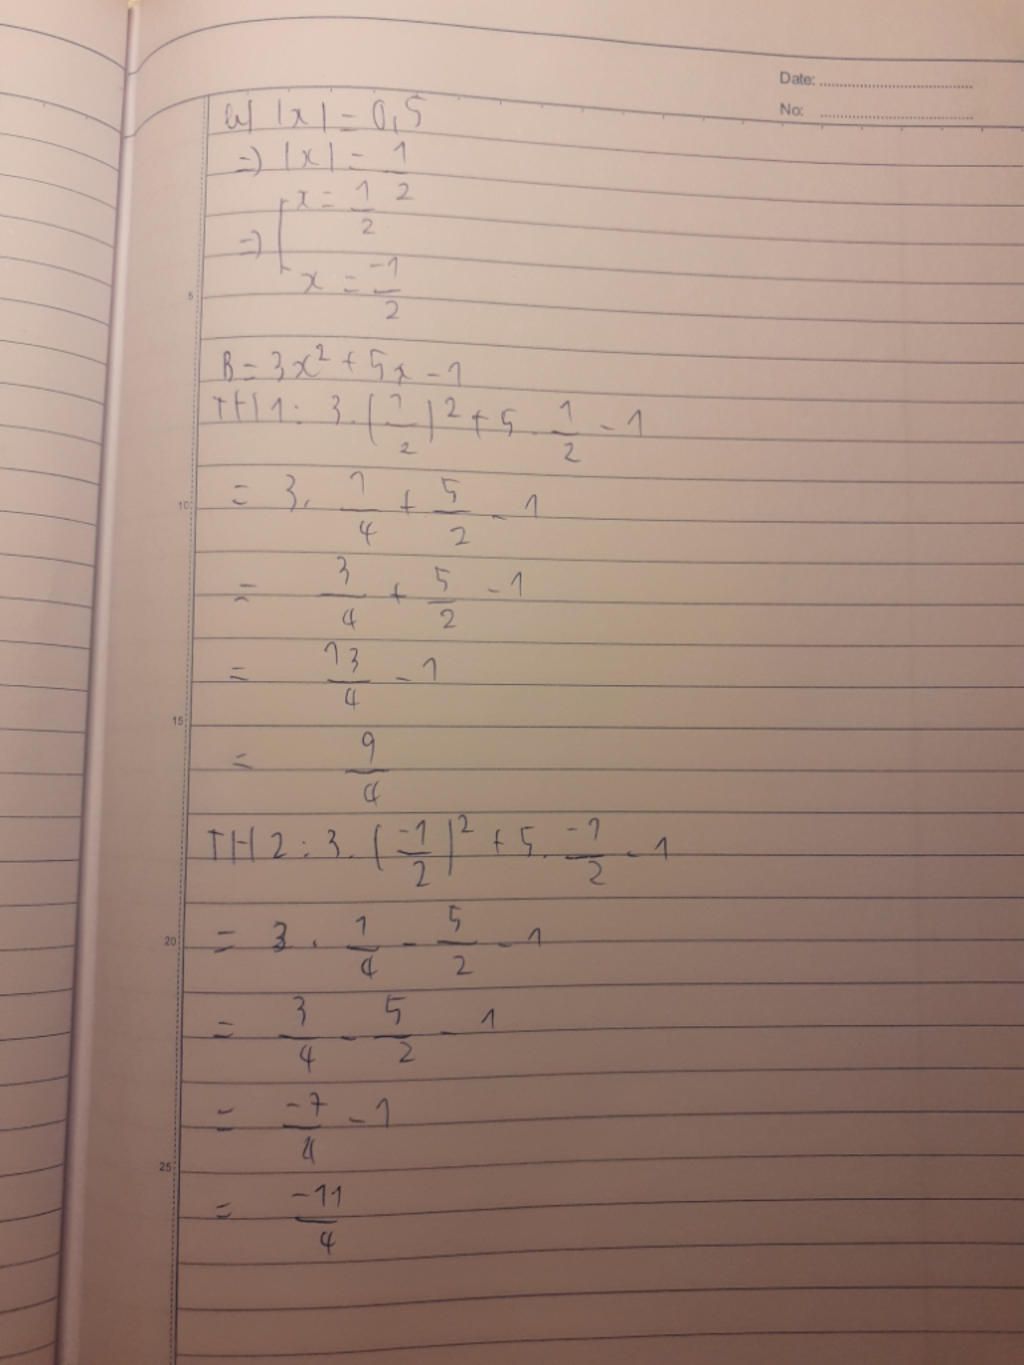 Date:
No:
a) |x| = 0,5
=) |x| = 1/2
=) [ x = 1/2
x = -1/2
5
B = 3x² + 5x - 1
TH1: 3.(1/2)² + 5.1/2 - 1
= 3. 1/4 + 5/2 - 1
10
= 3/4 + 5/2 - 1
= 13/4 - 1
15
= 9/4
TH2: 3.(-1/2)² + 5.-1/2 - 1
= 3. 1/4 - 5/2 - 1
20
= 3/4 - 5/2 - 1
= -7/4 - 1
25
= -11/4